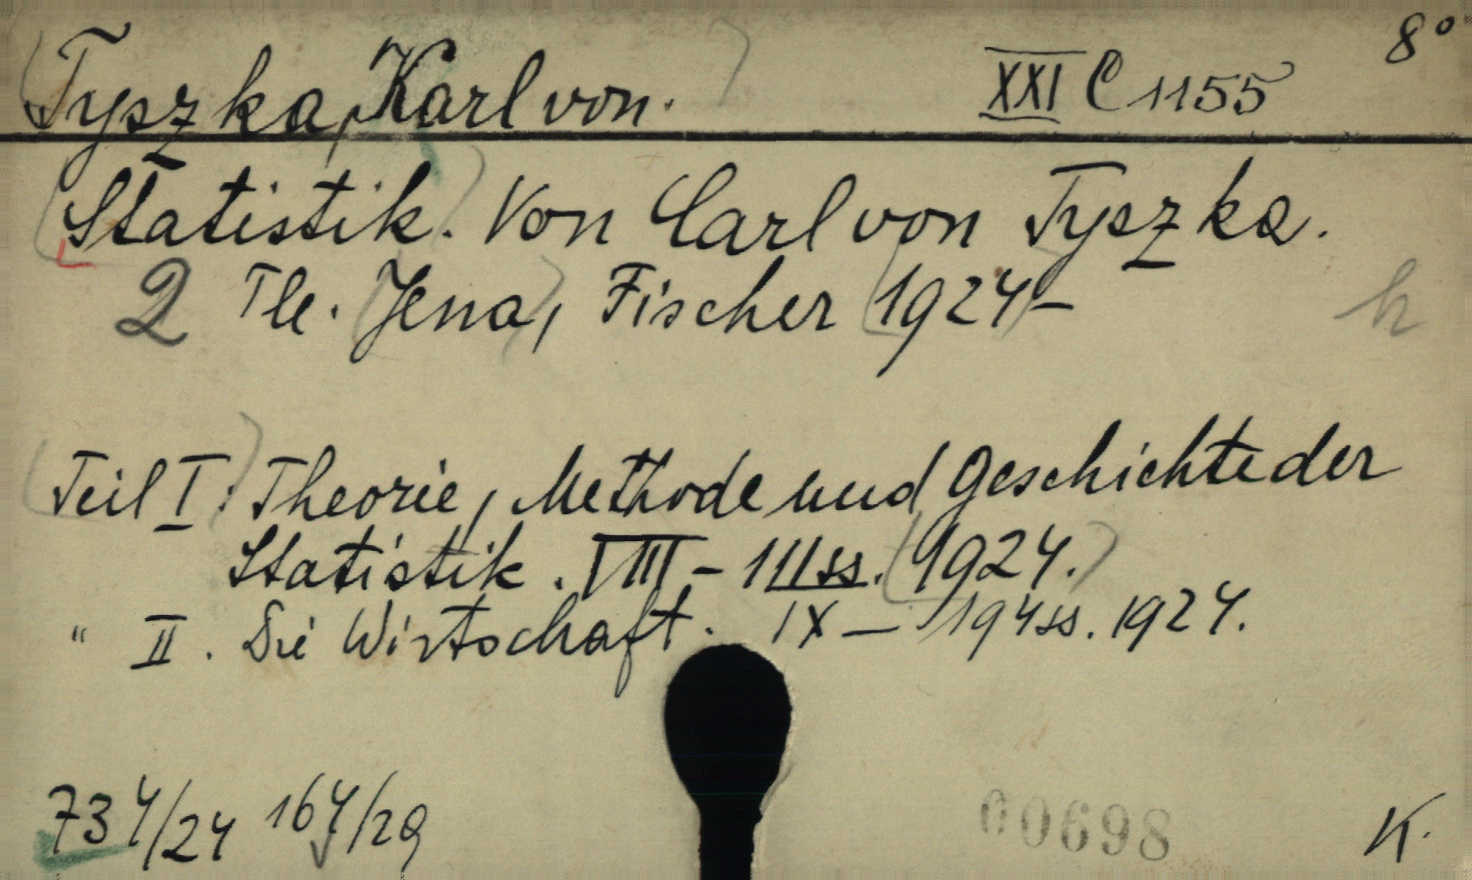 8°
Tyszka, Karl von. XXI C 1155
Statistik. Von Carl von Tyszka.
2 Tle. Jena, Fischer 1924-
h
Teil I. Theorie, Methode und Geschichte der
Statistik. VIII - 111 ss. 1924.
" II. Die Wirtschaft. IX - 194 ss. 1924.
734/24 164/29
00698
K.